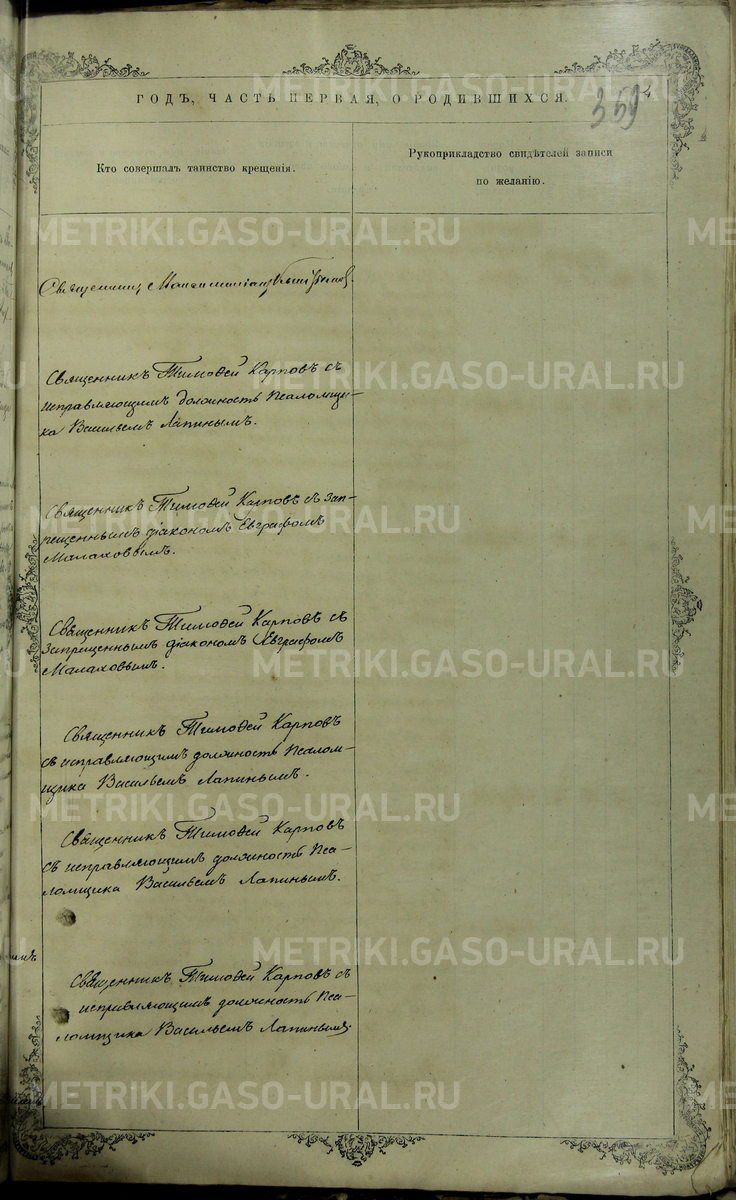 METRIKI.GASO-URAL.RU
ГОДЪ, ЧАСТЬ ПЕРВАЯ, О РОДИВШИХСЯ.
359
Кто совершалъ таинство крещенія.
Рукоприкладство свидѣтелей записи
по желанію.
METRIKI.GASO-URAL.RU
Священникъ
METRIKI.GASO-URAL.RU
Священникъ Тимоѳей Карповъ съ
исправляющимъ должность Псаломщи-
ка Васильемъ Лапинымъ.
Священникъ Тимоѳей Карповъ съ зап-
рещеннымъ діакономъ Евграфомъ
Малаховымъ.
METRIKI.GASO-URAL.RU
Священникъ Тимоѳей Карповъ съ
Запрещеннымъ діакономъ Евграфомъ
Малаховымъ.
METRIKI.GASO-URAL.RU
Священникъ Тимоѳей Карповъ
съ исправляющимъ должность Псалом-
щика Васильемъ Лапинымъ.
METRIKI.GASO-URAL.RU
Священникъ Тимоѳей Карповъ
съ исправляющимъ должность Пса-
ломщика Васильемъ Лапинымъ.
METRIKI.GASO-URAL.RU
Священникъ Тимоѳей Карповъ съ
исправляющимъ должность Пса-
ломщика Васильемъ Лапинымъ.
METRIKI.GASO-URAL.RU